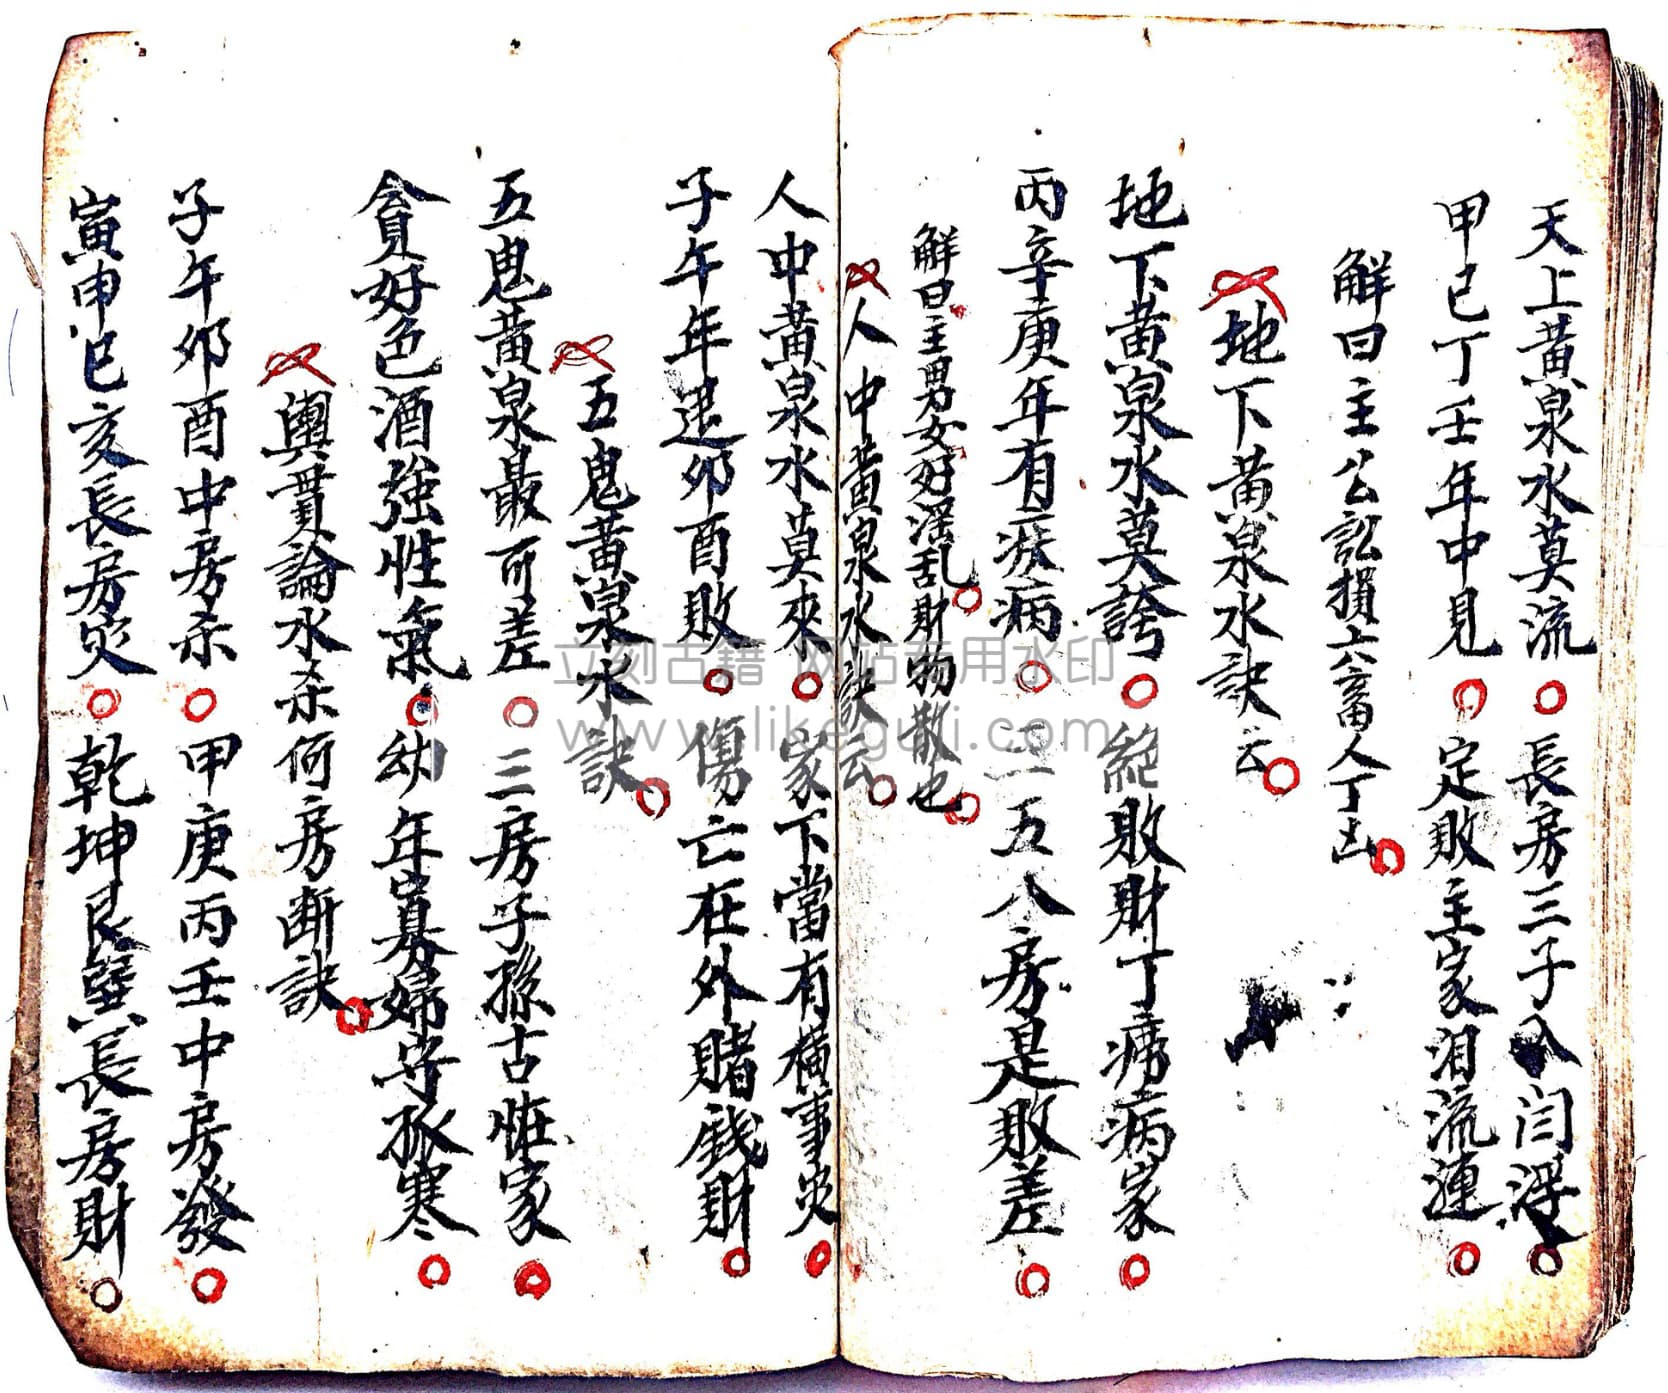 天上黃泉水莫流○長房三子入閆浮○
甲己丁壬年中見○定敗主家淚流連○
解曰主公訟損六畜人丁凶○
地下黃泉水訣云○
地下黃泉水莫誇○絕敗財丁癆病家○
丙辛庚年有疾病○二五八房是敗差○
解曰主男女好淫乱○財物散也○
人中黃泉水訣云○
人中黃泉水莫來○家下當有橫事災○
子午年逢卯酉敗○傷亡在外賭錢財○
五鬼黃泉水訣○
五鬼黃泉最可差○三房子孫古怪家○
貪好色酒強性氣○幼年寡婦守孤寒○
輿貫論水杀何房断訣○
子午卯酉中房杀○甲庚丙壬中房發○
寅申巳亥長房災○乾坤艮巽長房財○
立刻古籍 网站专用水印
www.likeguji.com